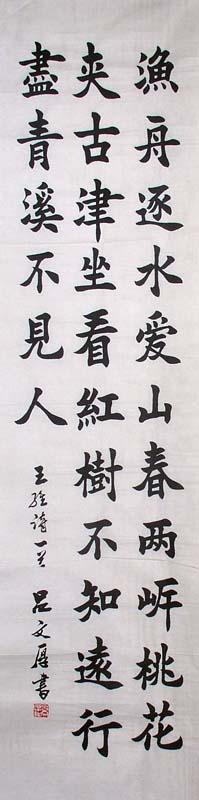 漁舟逐水爱山春两岸桃花
夹古津坐看紅樹不知遠行
盡青溪不見人
王維詩一首 吕文厚書